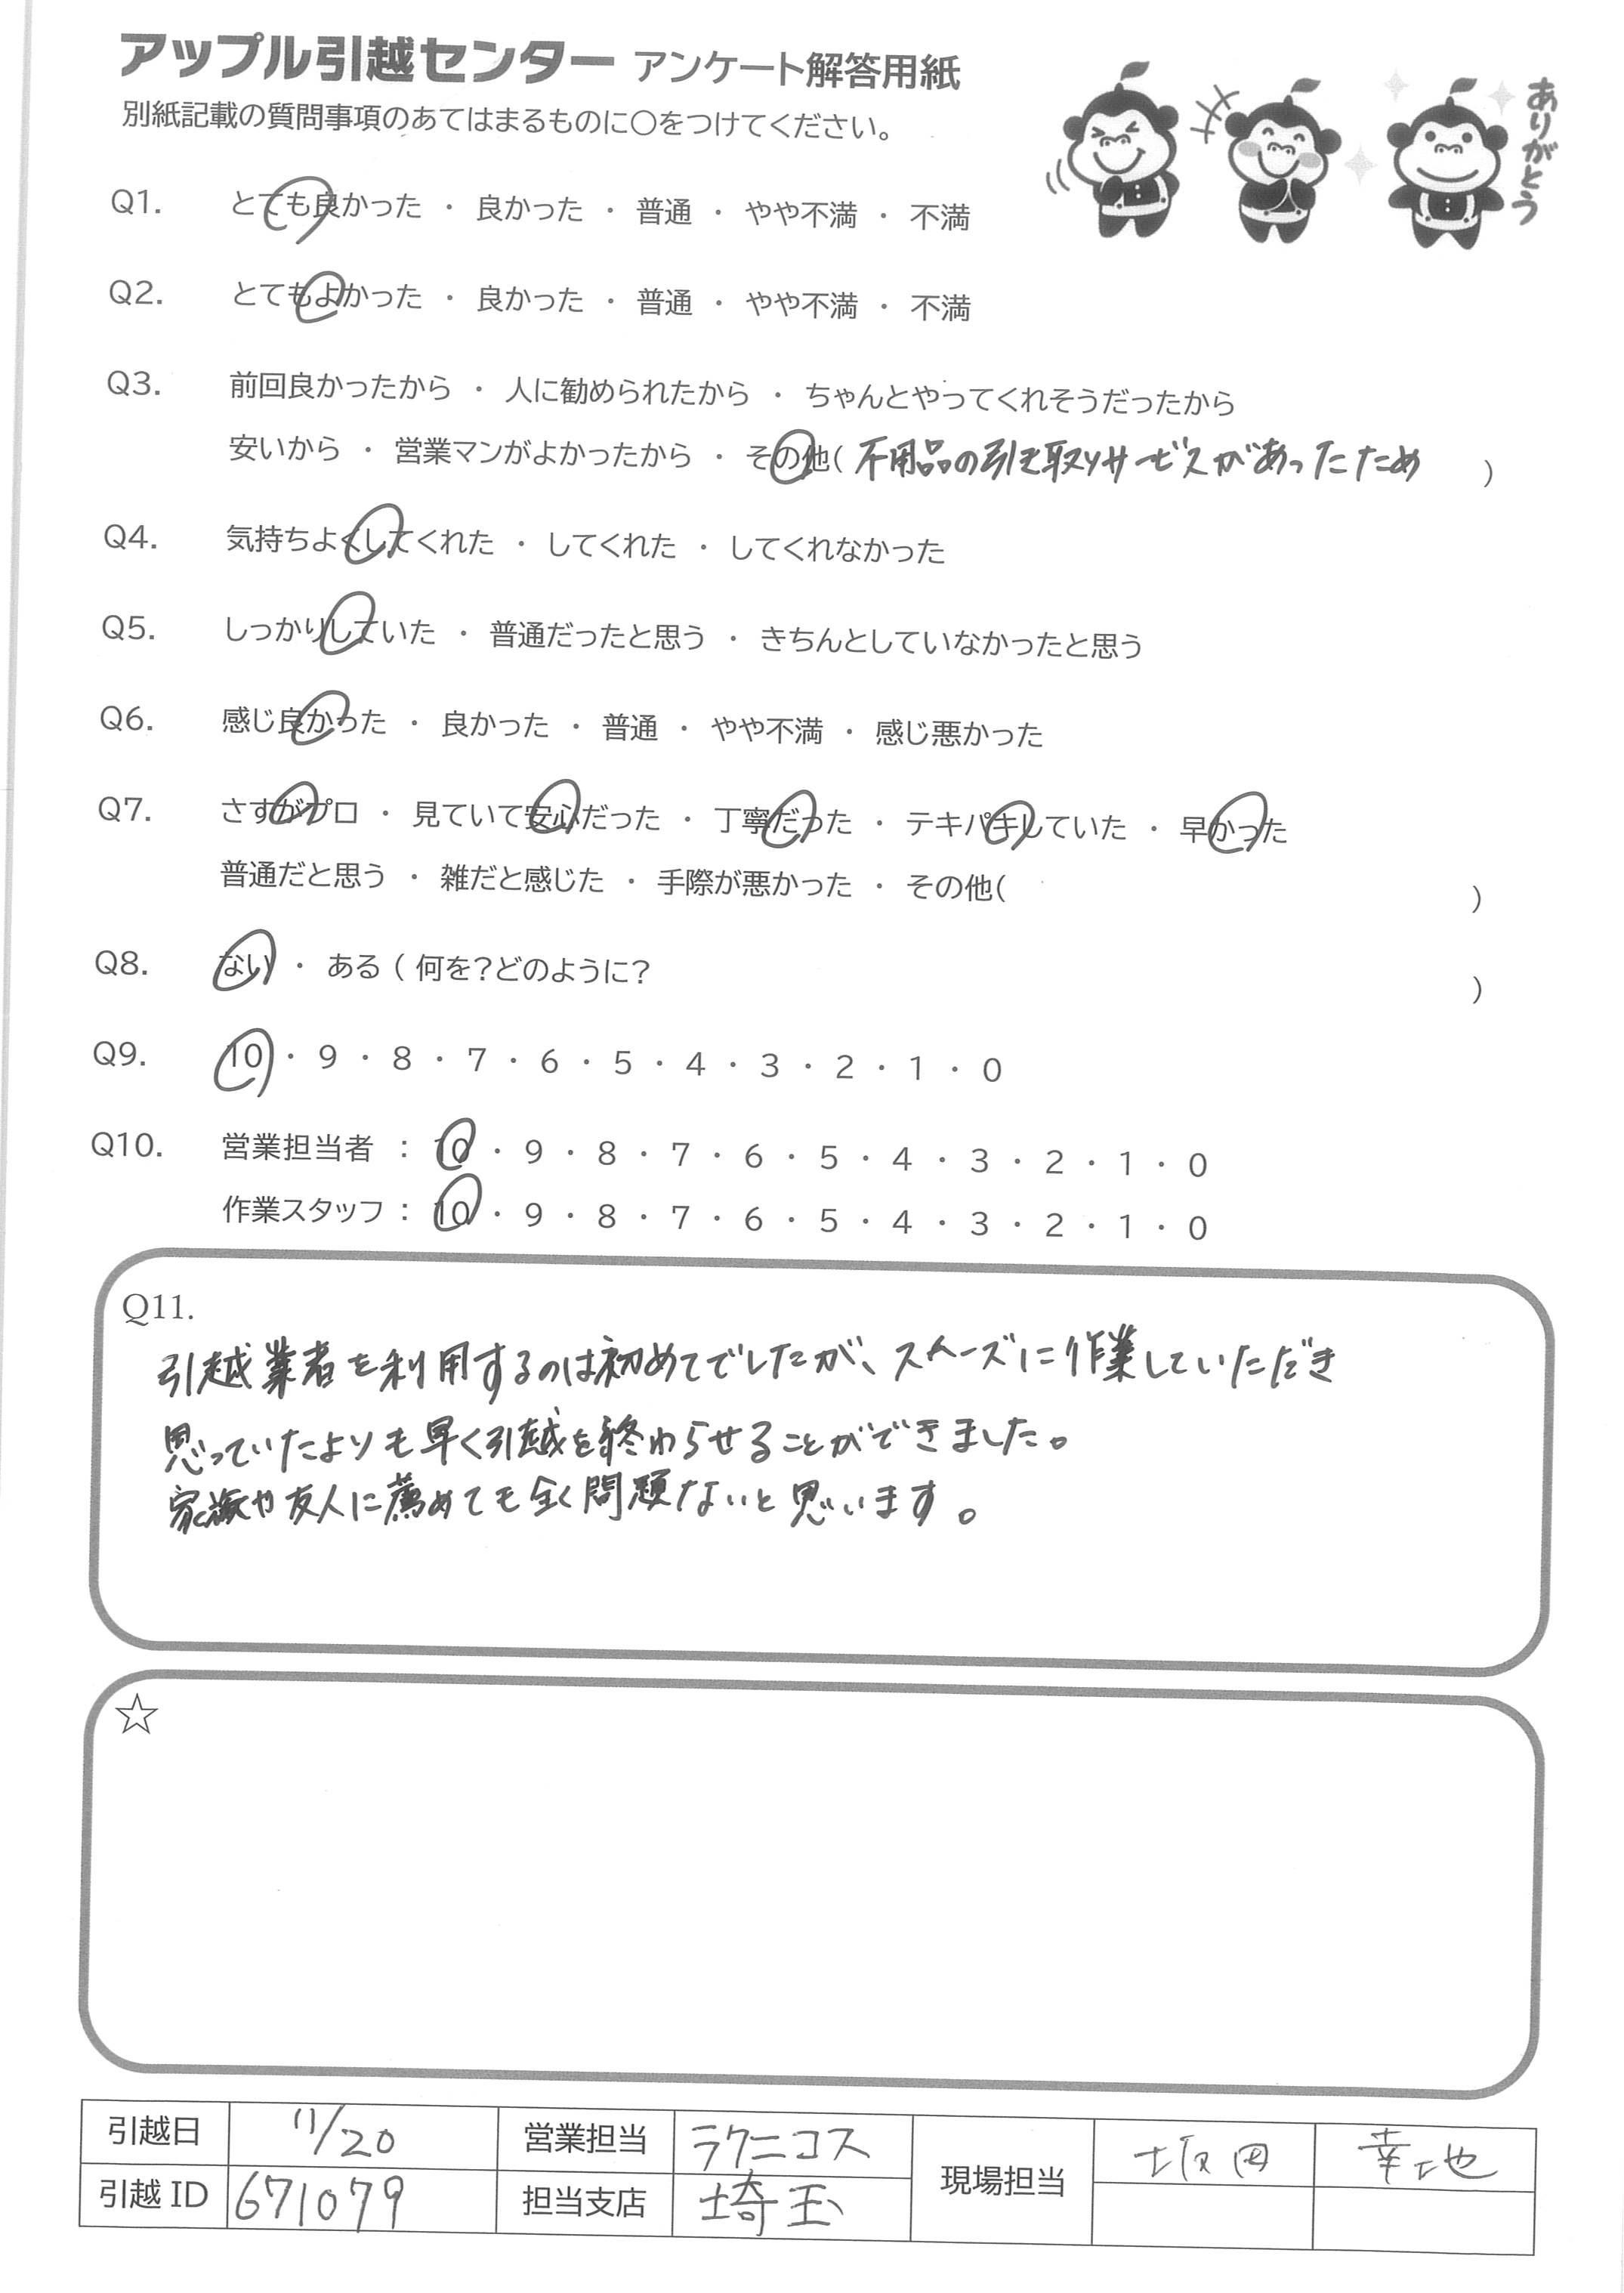 アップル引越センター アンケート解答用紙
別紙記載の質問事項のあてはまるものに〇をつけてください。
ありがとう
Q1. とても良かった ・ 良かった ・ 普通 ・ やや不満 ・ 不満
Q2. とてもよかった ・ 良かった ・ 普通 ・ やや不満 ・ 不満
Q3. 前回良かったから ・ 人に勧められたから ・ ちゃんとやってくれそうだったから
安いから ・ 営業マンがよかったから ・ その他( 不用品の引き取りサービスがあったため )
Q4. 気持ちよくしてくれた ・ してくれた ・ してくれなかった
Q5. しっかりしていた ・ 普通だったと思う ・ きちんとしていなかったと思う
Q6. 感じ良かった ・ 良かった ・ 普通 ・ やや不満 ・ 感じ悪かった
Q7. さすがプロ ・ 見ていて安心だった ・ 丁寧だった ・ テキパキしていた ・ 早かった
普通だと思う ・ 雑だと感じた ・ 手際が悪かった ・ その他( )
Q8. ない ・ ある ( 何を?どのように? )
Q9. 10 ・ 9 ・ 8 ・ 7 ・ 6 ・ 5 ・ 4 ・ 3 ・ 2 ・ 1 ・ 0
Q10. 営業担当者 : 10 ・ 9 ・ 8 ・ 7 ・ 6 ・ 5 ・ 4 ・ 3 ・ 2 ・ 1 ・ 0
作業スタッフ : 10 ・ 9 ・ 8 ・ 7 ・ 6 ・ 5 ・ 4 ・ 3 ・ 2 ・ 1 ・ 0
Q11.
引越業者を利用するのは初めてでしたが、スムーズに作業していただき
思っていたよりも早く引越を終わらせることができました。
家族や友人に薦めても全く問題ないと思います。
☆
引越日 11/20 営業担当 ラクニコス 現場担当 坂田 幸地
引越ID 671079 担当支店 埼玉